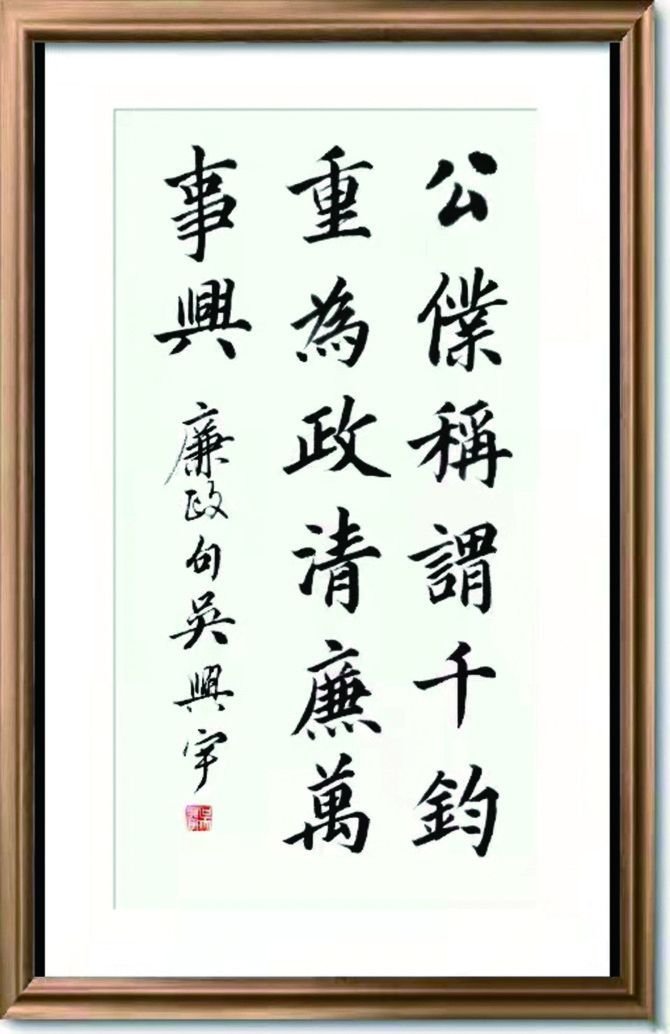 公僕稱謂千鈞
重為政清廉萬
事興
廉政句吳興宇